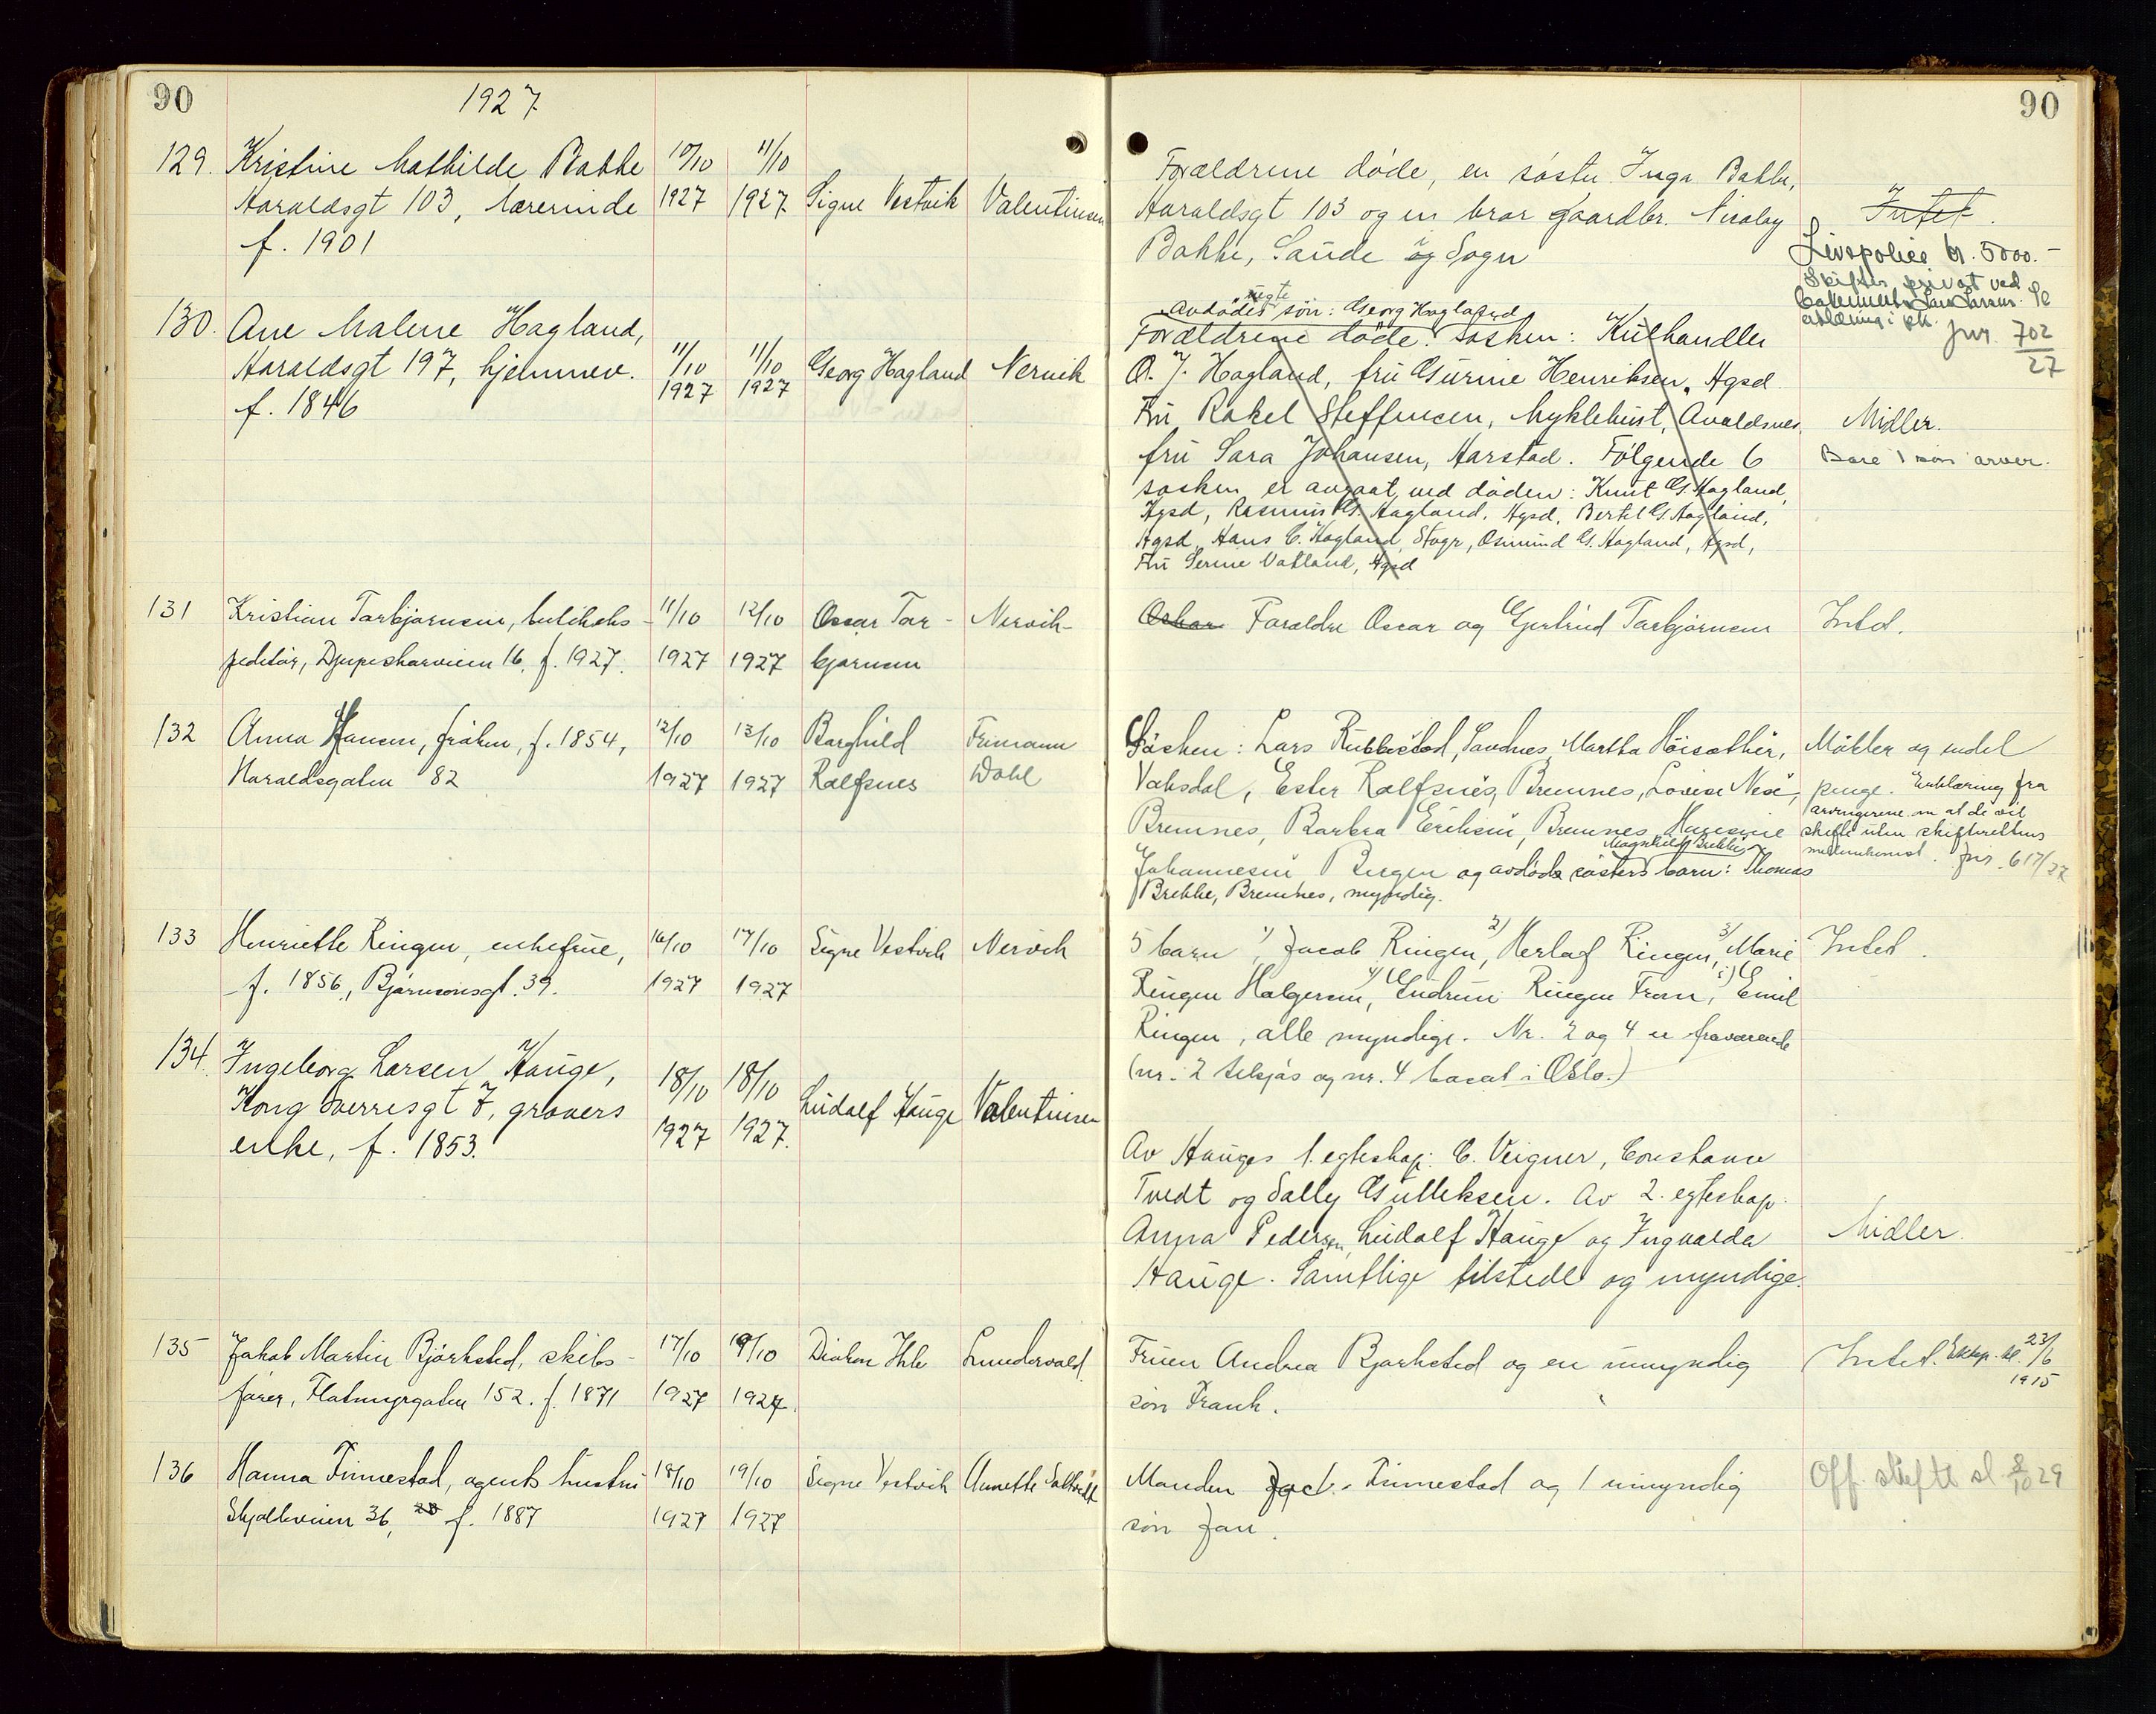 90
1927
129. Kristine Mathilde Bakke 10/10 11/10
Haraldsgt 103, lærerinde 1927 1927 Signe Vestvik Valentinsen
f. 1901
130. Ane Malene Hagland,
Haraldsgt 197, hjemmev. 11/10 11/10 Georg Hagland Nervik
f. 1846 1927 1927
131 Kristian Torbjørnsen, 11/10 12/10 Oscar Tor- Nervik
Djupeskarveien 16, f. 1927. 1927 1927 bjørnsen
132 Anna Hansen, frøken, f. 1854, 12/10 13/10 Borghild Frimann
Haraldsgaten 82 1927 1927 Rolfsnes Dahl
133 Henriette Ringen, enkefrue, 16/10 17/10 Signe Vestvik Nervik
f. 1856, Bjørnsonsgt. 39. 1927 1927
134. Ingeborg Larsen Hauge, 18/10 18/10
Kong Sverresgt 7, gravers Ludolf Hauge Valentinsen
enke, f. 1853. 1927 1927.
135 Jakob Martin Bjørksted, skibs- 17/10 19/10 Diakon Ihle Lundervold
fører, Flatmyrgaten 152. f. 1871 1927 1927.
136 Hanna Finnestad, agents hustru 18/10 19/10 Signe Vestvik Annette
36, 28 f. 1887 1927 1927
90
Forældrene døde, en søster Inga Bakke,
Haraldsgt 103 og en bror gaardbr. Nicolay
Bakke, Sande i Sogn
Intet.
Livspolice kr. 5000.-
Skiftes privat ved
jnr. 702/27
Avdødes uegte søn: Georg Hagland
Forældrene døde. Søsken: Kulhandler
O. J. Hagland, fru Gurine Henriksen, Hgsd.
Fru Rakel Steffensen, Myklebust, Avaldsnes,
fru Sara Johansen, Harstad. Følgende 6
søsken er avgaat ved døden: Knut G. Hagland,
Hgsd, Rasmus G. Hagland, Hgsd, Bertel G. Hagland,
Hgsd, Hans C. Hagland, Osmund G. Hagland, Hgsd,
Fru Serine Vatland, Hgsd
Midler.
Bare 1 søn arver.
Oskar Forældre Oscar og Gjertrud Torbjørnsen Intet.
Søsken: Lars Rubbestad, Sandnes, Martha Høisæther,
Vaksdal, Ester Rolfsnes, Bremnes, Lovise Nese,
Bremnes, Barbra Eriksen, Bremnes,
Johannesen Bergen og avdøde søsters barn: Thomas
Magnhild Brekke
Brekke, Bremnes, myndig.
Møbler og endel
penge. Erklæring fra
arvingerne om at de vil
skifte uten skifterettens
medvirkning. Jnr. 617/27
5 barn 1) Jacob Ringen, 2) Herlof Ringen, 3) Marie Intet.
Ringen Holgersen, 4) Gudrun Ringen From, 5) Emil
Ringen, alle myndige. Nr. 2 og 4 er fraværende
(nr. 2 tilsjøs og nr. 4 bosat i Oslo.)
Av Hauges 1. egteskap: C. Veigner, Constance
Tvedt og Sally Gulliksen. Av 2. egteskap:
Anna Pedersen, Ludolf Hauge og Ingvalda
Hauge. Samtlige tilstede og myndige.
Midler.
Fruen Andrea Bjørksted og en umyndig
søn Frank.
Intet. 23/6
1915
Manden Jack. Finnestad og 1 umyndig
søn Jan.
Off. skifte sl. 8/10 29